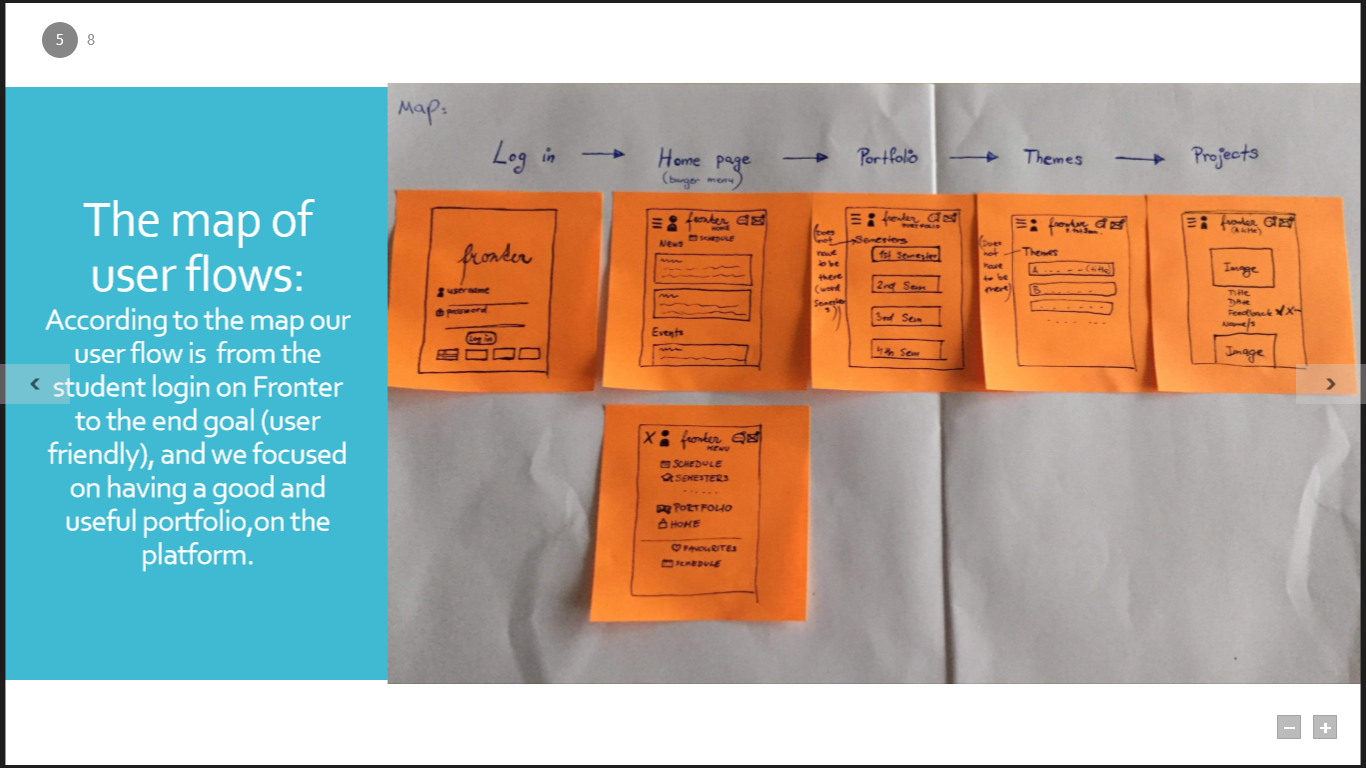 5 8
The map of
user flows:
According to the map our
user flow is from the
student login on Fronter
to the end goal (user
friendly), and we focused
on having a good and
useful portfolio,on the
platform.
Map:
Log in → Home page → Portfolio → Themes → Projects
(burger menu)
fronter
username
password
Log in
fronter
HOME
SCHEDULE
News
Events
fronter
PORTFOLIO
(Does
not
have
to be
there
(word
Semesters
1st Semester
2nd Sem
3rd Sem
4th Sem
fronter
(Does
not
have
to be
there)
Themes
A - - - - (title)
B - - - -
fronter
(A title)
Image
Title
Date
Feedback
Name/s
Image
X fronter
MENU
SCHEDULE
SEMESTERS
......
PORTFOLIO
HOME
FAVOURITES
SCHEDULE